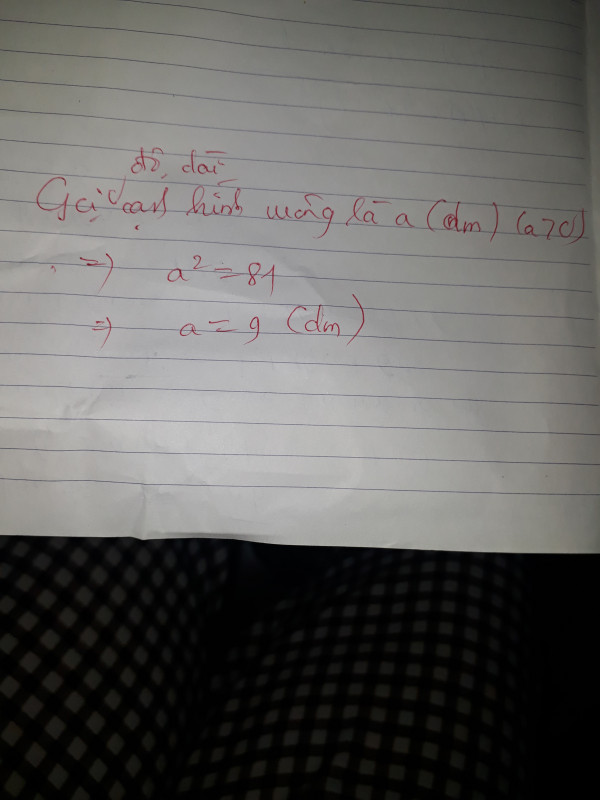 độ dài
Gọi cạnh hình vuông là a (dm) (a>0)
=> a² = 81
=> a = 9 (dm)